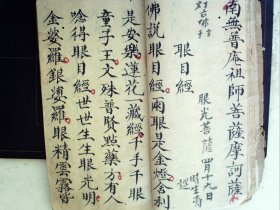 南無普庵祖師菩薩摩訶薩
眼光菩薩 四月十九日
眼目經
佛說眼目經兩眼是金燈舍利
是安樂蓮花藏經千手千眼
童子王文殊普賢點藥方有人
唸得眼目經世世生生眼光明
金婆羅銀婆羅眼精雲霧皆